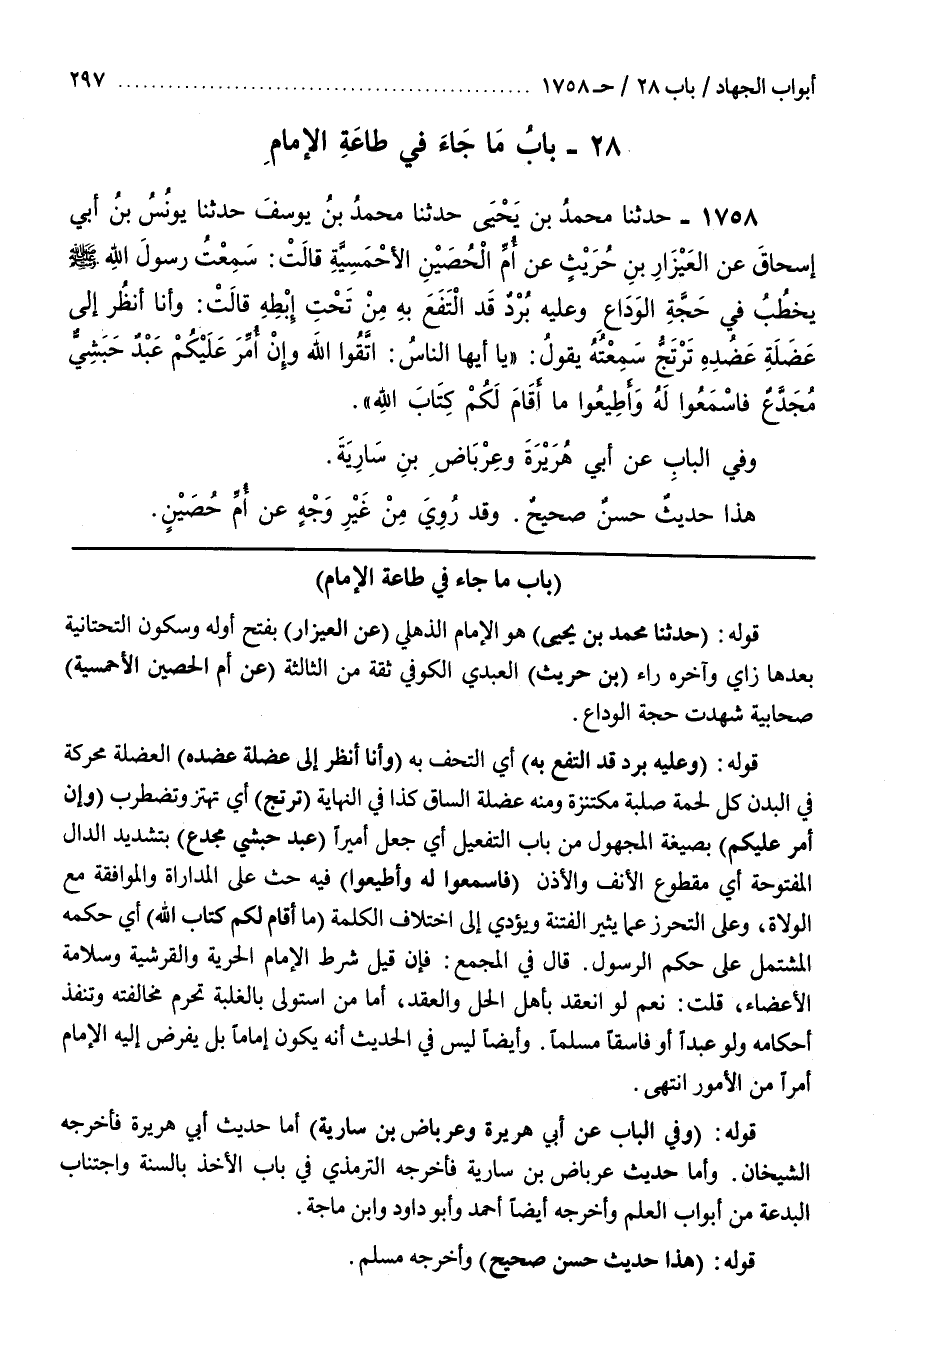 أبواب الجهاد / باب ٢٨ / حـ ١٧٥٨ .................................................. ٢٩٧
٢٨ - بابُ مَا جَاءَ في طاعَةِ الإمامِ
١٧٥٨ - حدثنا محمدُ بن يَحْيَى حدثنا محمدُ بنُ يوسفَ حدثنا يونُسُ بنُ أبي
إسحاقَ عن العَيْزَارِ بنِ حُرَيْثٍ عن أُمِّ الْحُصَيْنِ الأحْمَسِيَّةِ قالَتْ: سَمِعْتُ رسولَ اللهِ ﷺ
يخطُبُ في حَجَّةِ الوَدَاعِ وعليه بُرْدٌ قَد الْتَفَعَ بهِ مِنْ تَحْتِ إبْطِهِ قالَتْ: وأنا أنظُر إلى
عَضَلَةِ عَضُدِهِ تَرْتَجُّ سَمِعْتُهُ يقولُ: «يا أيها الناسُ: اتَّقُوا الله وإنْ أُمِّرَ عَلَيْكُمْ عَبْدٌ حَبَشِيٌّ
مُجَدَّعٌ فاسْمَعُوا لَهُ وَأَطِيعُوا ما أَقَامَ لَكُمْ كِتَابَ اللهِ».
وفي البابِ عن أبي هُرَيْرَةَ وعِرْبَاضِ بنِ سَارِيَةَ.
هذا حديثٌ حسنٌ صحيحٌ. وقد رُوِيَ مِنْ غَيْرِ وَجْهٍ عن أُمِّ حُصَيْنٍ.
(باب ما جاء في طاعة الإمام)
قوله: (حدثنا محمد بن يحيى) هو الإمام الذهلي (عن العيزار) بفتح أوله وسكون التحتانية
بعدها زاي وآخره راء (بن حريث) العبدي الكوفي ثقة من الثالثة (عن أم الحصين الأحمسية)
صحابية شهدت حجة الوداع.
قوله: (وعليه برد قد التفع به) أي التحف به (وأنا أنظر إلى عضلة عضده) العضلة محركة
في البدن كل لحمة صلبة مكتنزة ومنه عضلة الساق كذا في النهاية (ترتج) أي تهتز وتضطرب (وإن
أمر عليكم) بصيغة المجهول من باب التفعيل أي جعل أميراً (عبد حبشي مجدع) بتشديد الدال
المفتوحة أي مقطوع الأنف والأذن (فاسمعوا له وأطيعوا) فيه حث على المداراة والموافقة مع
الولاة، وعلى التحرز عما يثير الفتنة ويؤدي إلى اختلاف الكلمة (ما أقام لكم كتاب الله) أي حكمه
المشتمل على حكم الرسول. قال في المجمع: فإن قيل شرط الإمام الحرية والقرشية وسلامة
الأعضاء، قلت: نعم لو انعقد بأهل الحل والعقد، أما من استولى بالغلبة تحرم مخالفته وتنفذ
أحكامه ولو عبداً أو فاسقاً مسلماً. وأيضاً ليس في الحديث أنه يكون إماماً بل يفرض إليه الإمام
أمراً من الأمور انتهى.
قوله: (وفي الباب عن أبي هريرة وعرباض بن سارية) أما حديث أبي هريرة فأخرجه
الشيخان. وأما حديث عرباض بن سارية فأخرجه الترمذي في باب الأخذ بالسنة واجتناب
البدعة من أبواب العلم وأخرجه أيضاً أحمد وأبو داود وابن ماجة.
قوله: (هذا حديث حسن صحيح) وأخرجه مسلم.